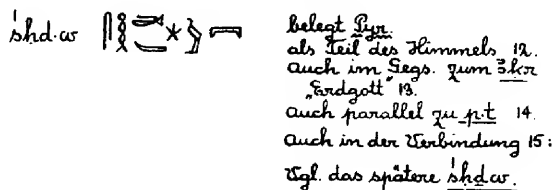 śhd·w belegt Pyr.
als Teil des Himmels 12.
auch im Gegs. zum ꜣkr
„Erdgott" 13.
auch parallel zu p.t 14.
auch in der Verbindung 15:
Vgl. das spätere śhdw.